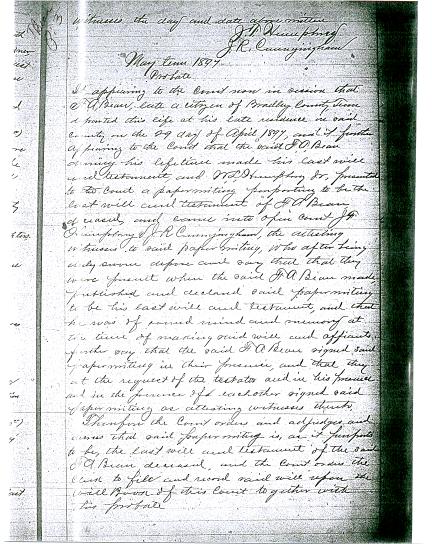 witnesses the day and date above written
J. Humphrey
J.R. Cunnyingham
May term 1897
Probate
It appearing to the Court now in session that
F A Bean, late a citizen of Bradley County Tenn
departed this life at his late residence in said
county, on the 29 day of April 1897, and it further
appearing to the Court that the said F A Bean
during his lifetime made his last will
and testament and W L Humphrey Jr, presented
to the court a paperwriting purporting to be the
last will and testament of F A Bean
deceased, and came into open court J
Humphrey & J.R. Cunnyingham, the attesting
witnesses to said paperwriting, who after being
duly sworn depose and say that that they
were present when the said F A Bean made
published and declared said paperwriting
to be his last will and testament, and that
he was of sound mind and memory at
the time of making said will and affiants
further say that the said F A Bean signed said
paperwriting in their presence, and that they
at the request of the testator and in his presence
and in the presence of eachother signed said
paperwriting as attesting witnesses thereto.
Therefore the Court orders and adjudges and
that said paperwriting is, as it purports
to be, the last will and testament of the said
F A Bean deceased, and the Court orders the
clerk to file and record said will upon the
Will Book of this Court together with
this probate